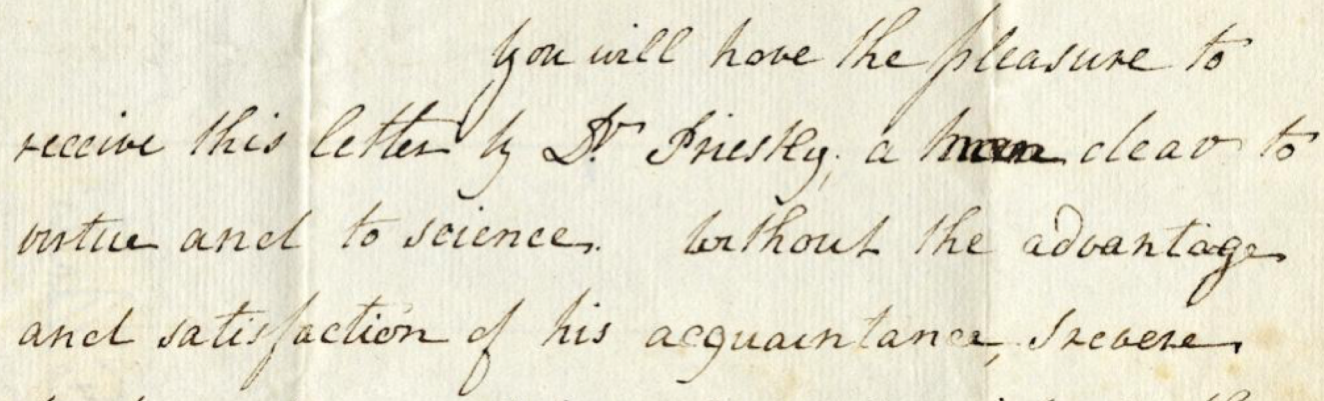 you will have the pleasure to
receive this letter by Dr Priestly, a man dear to
virtue and to science. Without the advantage
and satisfaction of his acquaintance, I revere